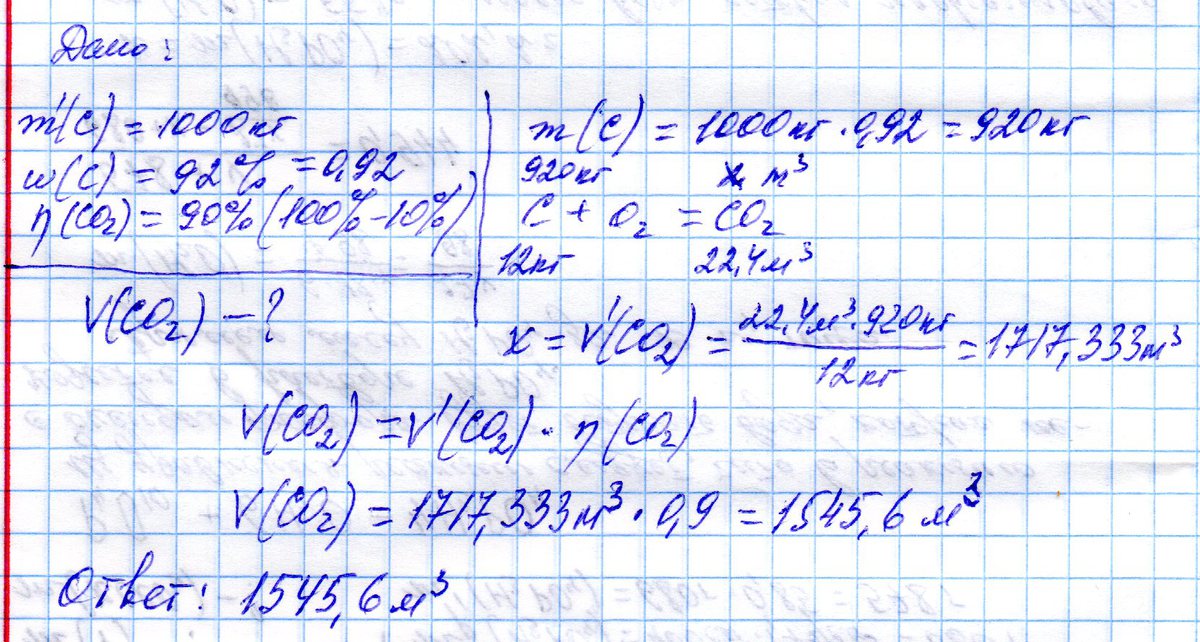 Дано:
m'(C) = 1000кг
w(C) = 92% = 0,92
η(CO₂) = 90% (100% - 10%)
V(CO₂) - ?
m(C) = 1000кг · 0,92 = 920кг
920кг x m³
C + O₂ = CO₂
12кг 22,4м³
x = V'(CO₂) = 22,4м³·920кг / 12кг = 1717,333m³
V(CO₂) = V'(CO₂) · η(CO₂)
V(CO₂) = 1717,333м³ · 0,9 = 1545,6 м³
Ответ: 1545,6 м³